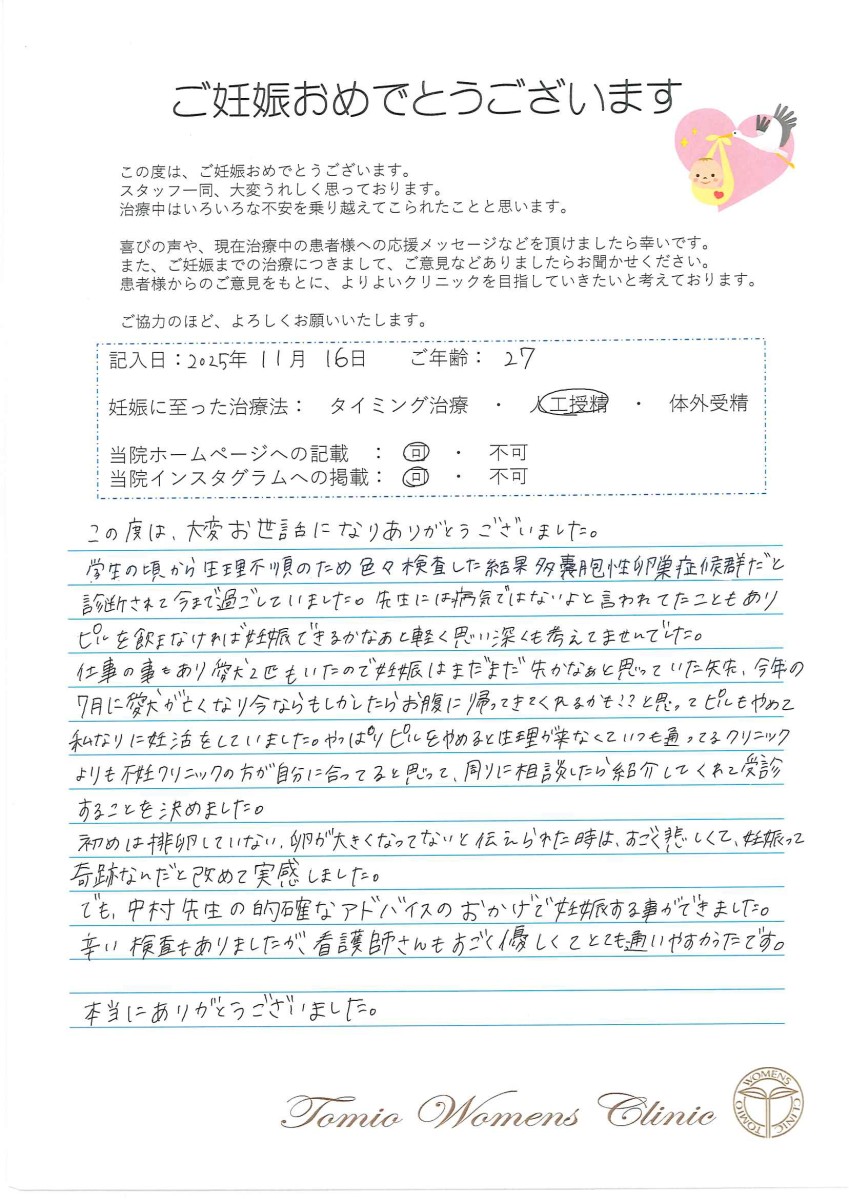 ご妊娠おめでとうございます
この度は、ご妊娠おめでとうございます。
スタッフ一同、大変うれしく思っております。
治療中はいろいろな不安を乗り越えてこられたことと思います。
喜びの声や、現在治療中の患者様への応援メッセージなどを頂けましたら幸いです。
また、ご妊娠までの治療につきまして、ご意見などありましたらお聞かせください。
患者様からのご意見をもとに、よりよいクリニックを目指していきたいと考えております。
ご協力のほど、よろしくお願いいたします。
記入日：2025年 11月 16日 ご年齢： 27
妊娠に至った治療法： タイミング治療 ・ 人工授精 ・ 体外受精
当院ホームページへの記載 ： 可 ・ 不可
当院インスタグラムへの掲載： 可 ・ 不可
この度は、大変お世話になりありがとうございました。
学生の頃から生理不順のため色々検査した結果多嚢胞性卵巣症候群だと
診断されて今まで過ごしていました。先生には病気ではないよと言われてたこともあり
ピルを飲まなければ妊娠できるかなあと軽く思い深くも考えてませんでした。
仕事の事もあり愛犬2匹もいたので妊娠はまだまだ先かなぁと思っていた矢先、今年の
7月に愛犬が亡くなり今ならもしかしたらお腹に帰ってきてくれるかも!?と思ってピルもやめて
私なりに妊活をしていました。やっぱりピルをやめると生理が来なくていつも通ってるクリニック
よりも不妊クリニックの方が自分に合ってると思って、周りに相談したら紹介してくれて受診
することを決めました。
初めは排卵していない、卵が大きくなってないと伝えられた時は、すごく悲しくて、妊娠って
奇跡なんだと改めて実感しました。
でも、中村先生の的確なアドバイスのおかげで妊娠する事ができました。
辛い検査もありましたが、看護師さんもすごく優しくてとても通いやすかったです。
本当にありがとうございました。
Tomio Womens Clinic
TOMIO WOMENS CLINIC